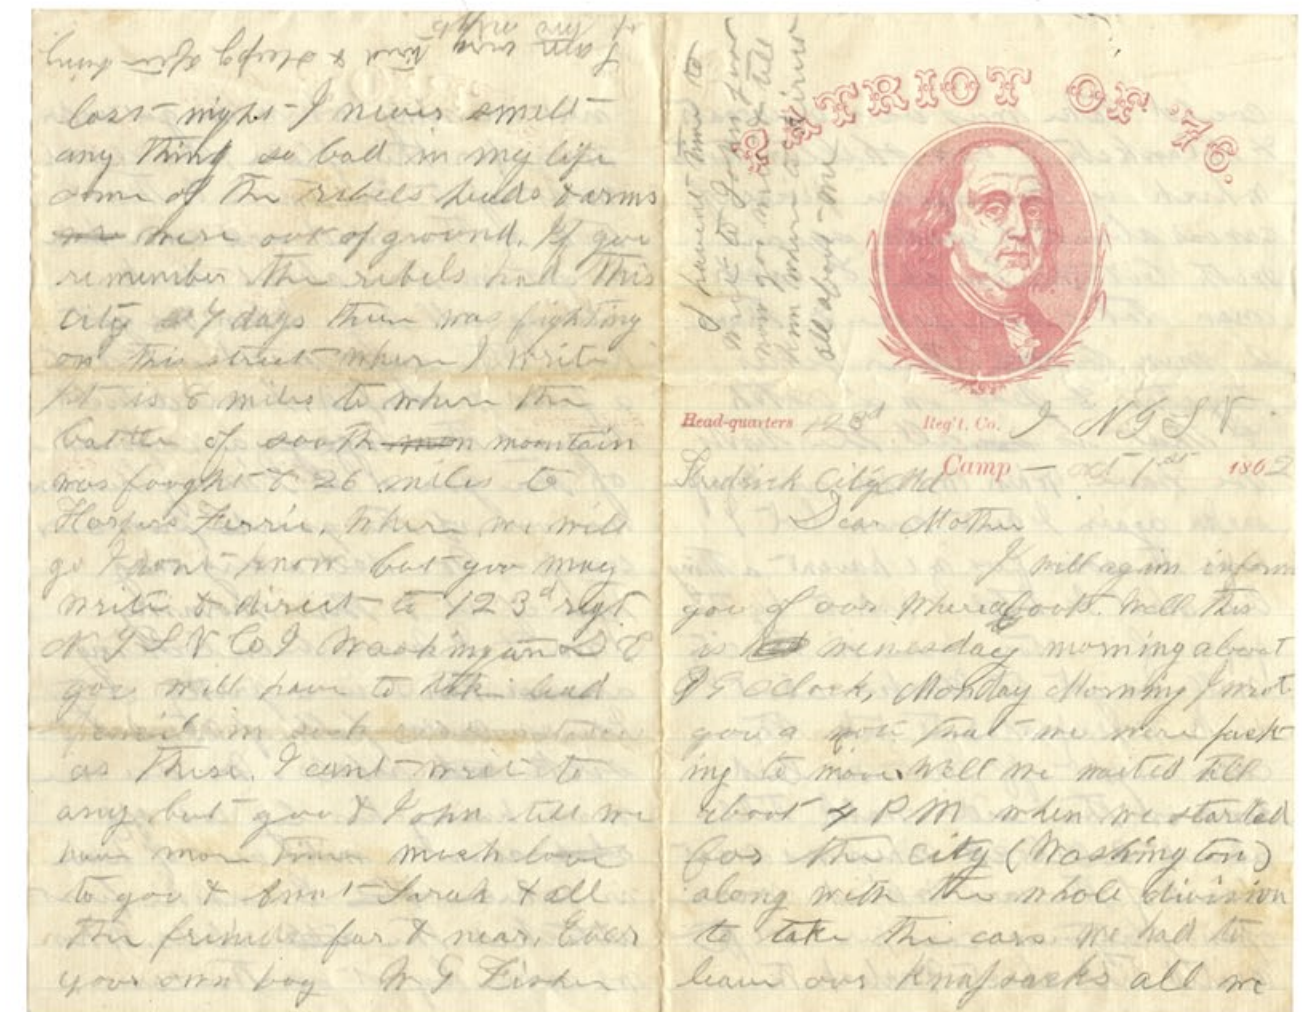 I am well & sleepy after being
last night I never smelt
any thing so bad in my life
some of the rebels heads & arms
were out of ground. If you
remember the rebels had this
city 7 days there was fighting
on the street where I write
It is 8 miles to where the
battle of south mountain
was fought & 26 miles to
Harpers Ferrie, Where we will
go I dont know but you may
write & direct to 123d regt
N Y S V Co I Washington D C
you will have to take lead
pencil in such
as these. I cant wret to
any but you & John till we
have more time much love
to you & Ann & Sarah & all
the friends far & near, Ever
your own boy W G Fisher
I havent time to
wret to John for
now you must tell
him where
all about me
PATRIOT OF '76.
Head-quarters 123d Reg't. Co. I N Y S V
Fredrick City Md Camp — Oct 1st 1862
Dear Mother
I will again inform
you of our whereabouts. Well this
is wenesday morning about
9 O Clock, Monday Morning I wrot
you a not that we were pack
ing to move Well we waited till
about 4 P M when we started
for the city (Washington)
along with the whole division
to take the cars we had to
leave our knapsacks all we